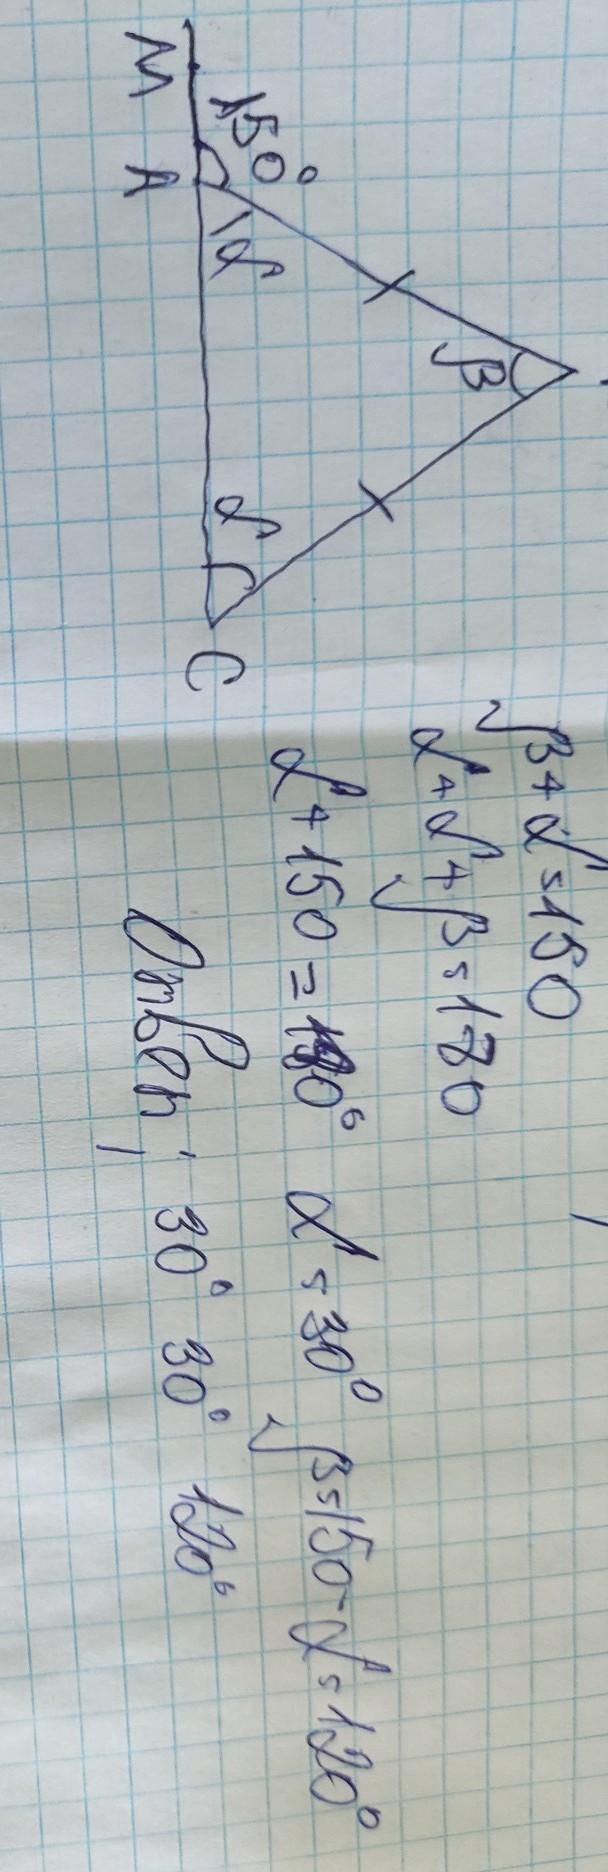 150°
M A α β α C
β+α=150
α+α+β=180
α+150=180° α=30° β=150-α=120°
Ответ: 30° 30° 120°